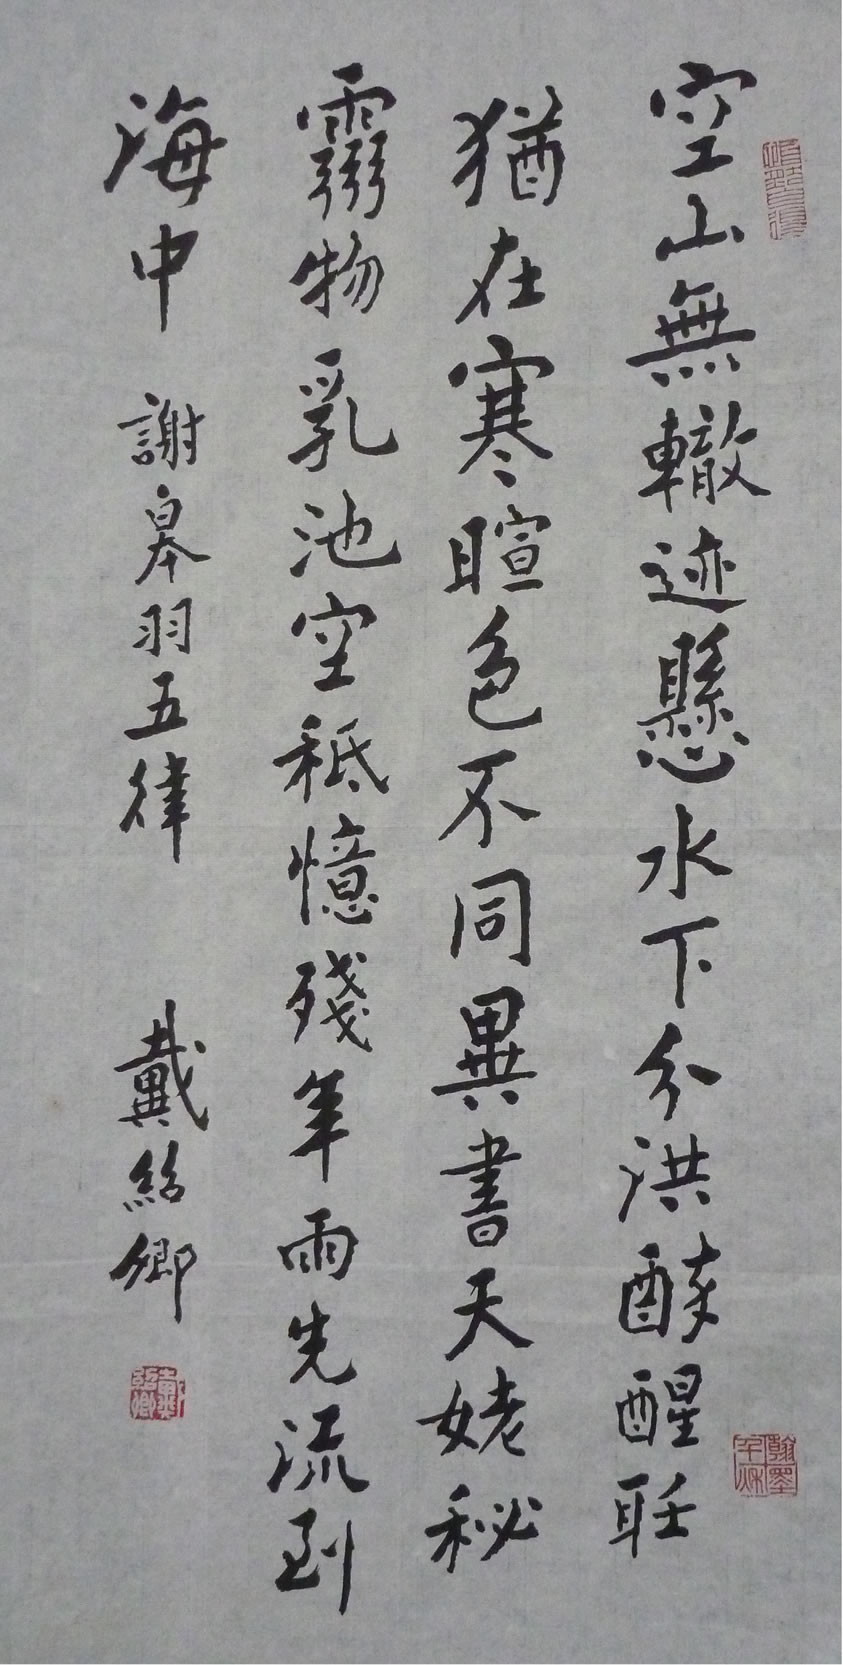 空山無轍迹懸水下分洪醉醒聽
猶在寒暄色不同異書天姥秘
靈物乳池空秪憶殘年雨先流到
海中 謝皋羽五律 戴紹卿
戴紹卿
翰墨千秋